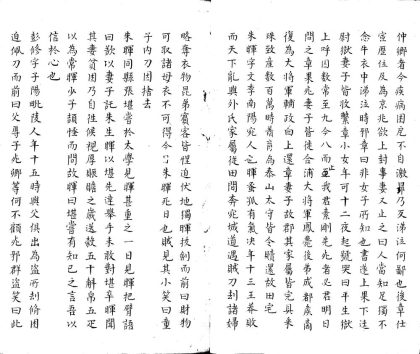 仲卿者今疾病困厄不自激卬乃反涕泣何鄙也後章仕
宦歷位及為京兆欲上封事妻又止之曰人當知足獨不
念牛衣中涕泣時耶章曰非女子所知也書遂上果下廷
尉獄妻子皆收繫章小女年可十二夜起號哭曰平生獄
上呼囚數常至九今八而止我君素剛先死者必君明日
問之章果死妻子皆徙合浦大將軍鳳薨後弟成都侯商
復為大將軍輔政白上還章妻子故郡其家屬皆完具采
珠致產數百萬時蕭育為泰山太守皆令贖還故田宅
朱暉字文季南陽宛人也暉蚤孤有氣決年十三王莽敗
而天下亂與外氏家屬從田間奔宛城道遇賊刀刦諸婦
略奪衣物昆弟賓客皆惶迫伏地獨暉拔劍而前曰財物
可取諸母衣不可得今日朱暉死日也賊見其小笑曰童
子內刀因捨去
朱暉同縣張堪嘗於太學見暉甚重之一日見暉把臂語
曰欲以妻子託朱生暉以堪先達舉手未敢對堪卒暉聞
其妻貧困乃自往候視厚賑贍之歲送穀五十斛帛五疋
以為常暉少子頡怪而問故暉曰堪嘗有知己之言吾以
信於心也
彭修字子陽毗陵人年十五時與父俱出為盜所刦修困
迫佩刀而前曰父辱子死卿等何不顧死耶群盜笑曰此